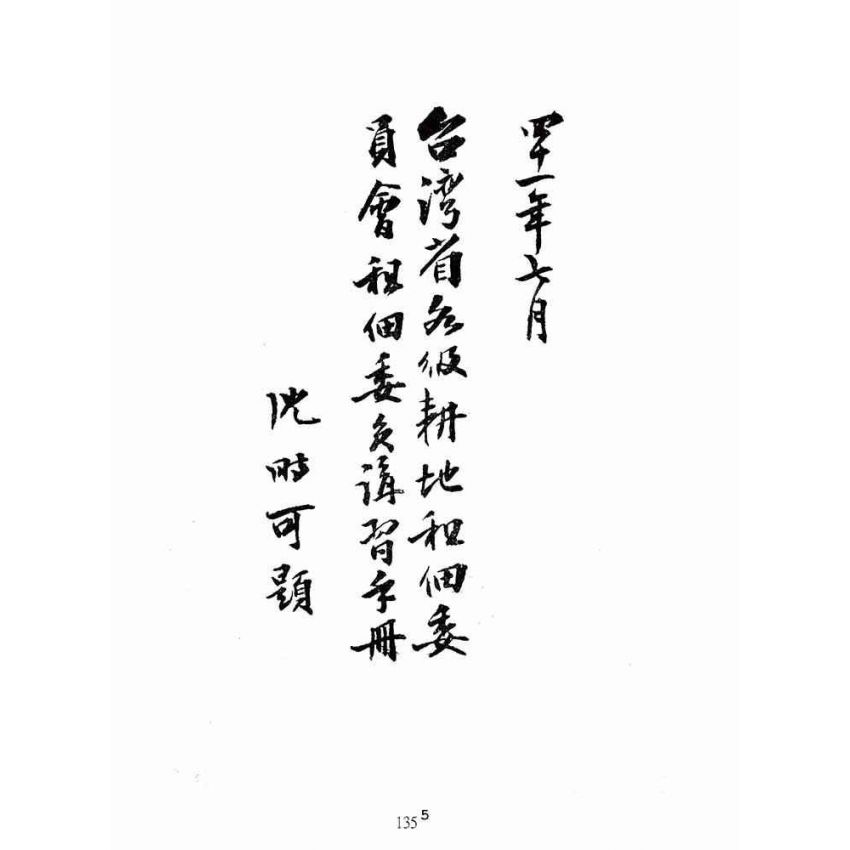 四十一年七月
台湾省各級耕地租佃委
員會租佃委員講習手冊
沈時可題
135 5